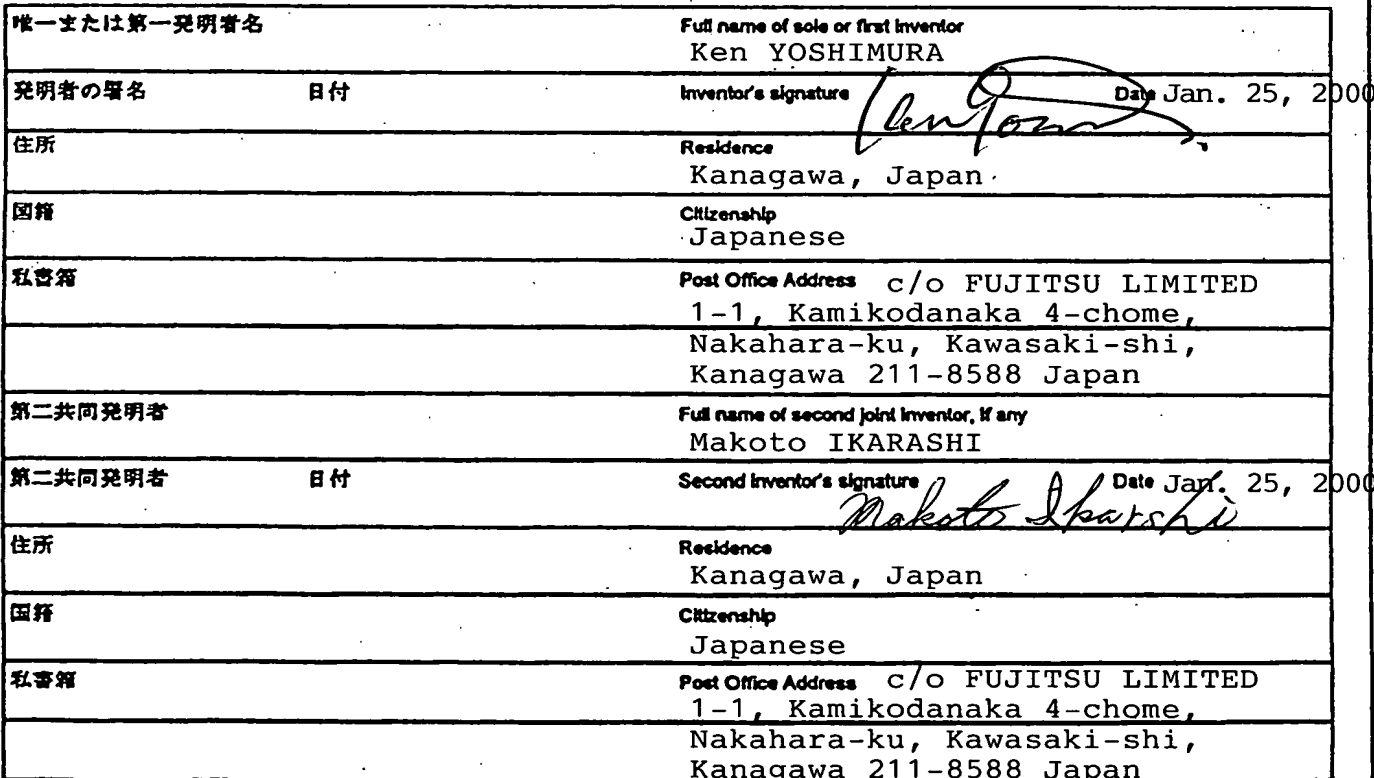 唯一または第一発明者名
Full name of sole or first inventor
Ken YOSHIMURA
発明者の署名 日付
Inventor's signature Date Jan. 25, 2000
住所
Residence
Kanagawa, Japan
国籍
Citizenship
Japanese
私書箱
Post Office Address c/o FUJITSU LIMITED
1-1, Kamikodanaka 4-chome,
Nakahara-ku, Kawasaki-shi,
Kanagawa 211-8588 Japan
第二共同発明者
Full name of second joint inventor, if any
Makoto IKARASHI
第二共同発明者 日付
Second inventor's signature Date Jan. 25, 2000
Makoto Ikarshi
住所
Residence
Kanagawa, Japan
国籍
Citizenship
Japanese
私書箱
Post Office Address c/o FUJITSU LIMITED
1-1, Kamikodanaka 4-chome,
Nakahara-ku, Kawasaki-shi,
Kanagawa 211-8588 Japan